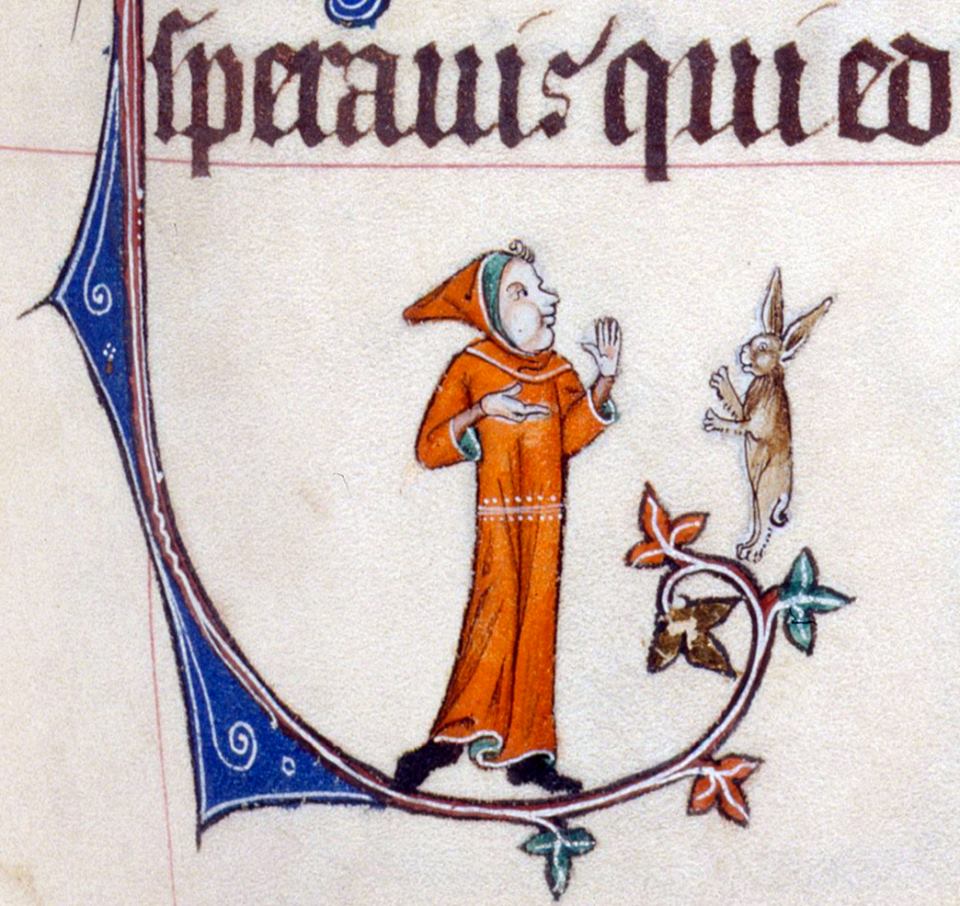 sperauis qui ed